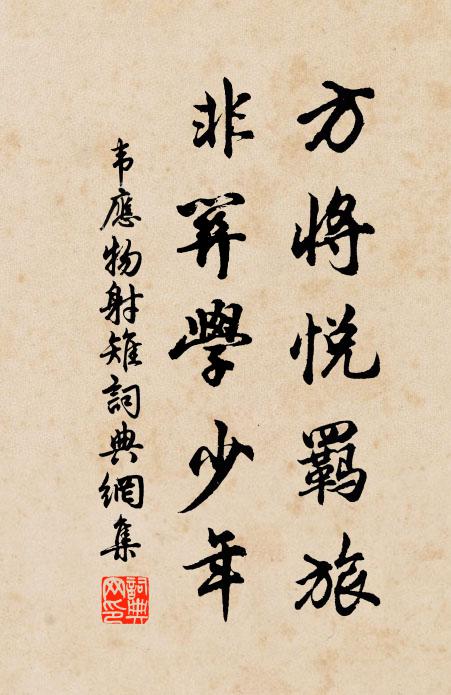 方将悦羁旅
非關學少年
韦應物射雉詞典網集
詞典网印